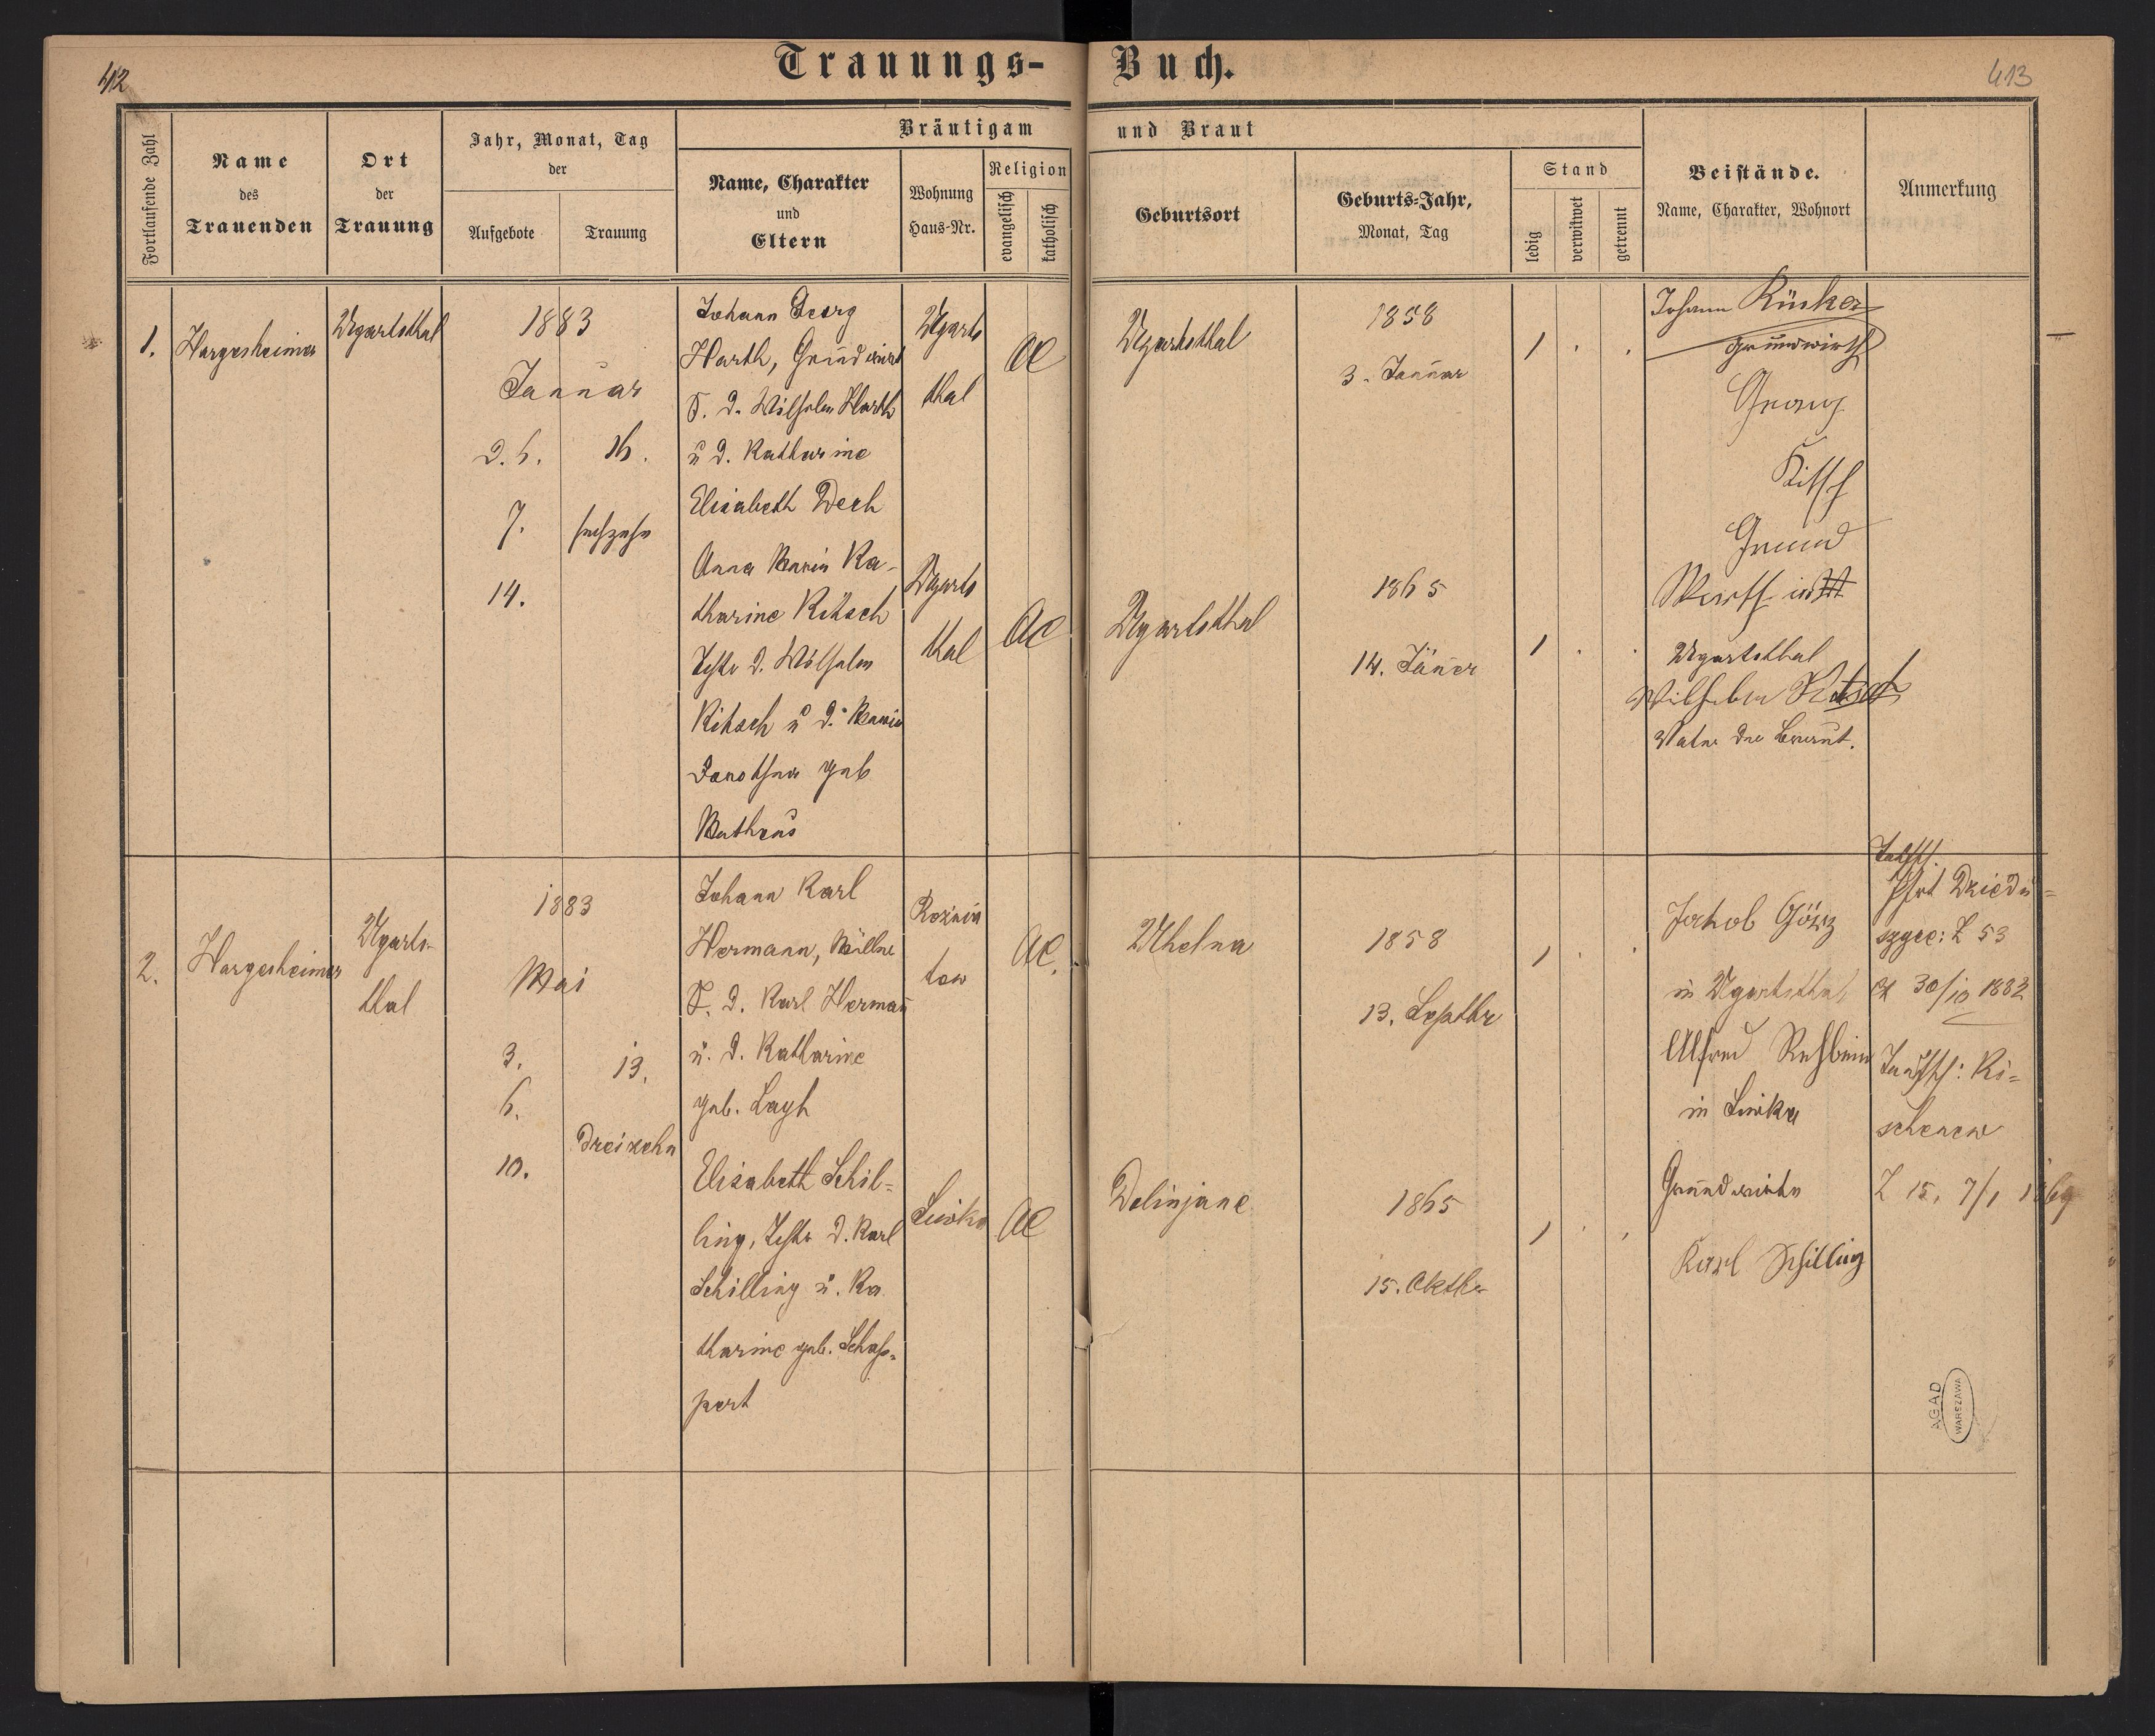 Trauungs-Buch.
412
413
Fortlaufende Zahl
Name
des
Trauenden
Ort
der
Trauung
Jahr, Monat, Tag
der
Aufgebote
Trauung
Bräutigam und Braut
Name, Charakter
und
Eltern
Wohnung
Haus-Nr.
Religion
evangelisch
katholisch
Geburtsort
Geburts-Jahr,
Monat, Tag
Stand
ledig
verwitwet
getrennt
Beistände.
Name, Charakter, Wohnort
Anmerkung
1.
Hargesheimer
Ugartsthal
1883
Januar
d. 6.
7.
14.
16.
sechzehn
Johann Georg
Harth, Grundwirt
S. d. Wilhelm Harth
u d. Katharine
Elisabeth Dech
Ugarts
thal
AC
Ugartsthal
1858
3. Januar
1 . .
Anna Maria Ka-
tharine Kitsch
Tchtr d. Wilhelm
Kitsch u d. Maria
Dorothea geb
Matheus
Ugarts
thal
AC
Ugartsthal
1865
14. Jäner
1 . .
Johann Rücker
Grundwirth
Georg
Kitsch
Grund
Wirth in
Ugartsthal
Wilhelm Kitsch
Vater der Braut.
2.
Hargesheimer
Ugarts-
thal
1883
Mai
3.
6.
10.
13.
Dreizehn
Johann Karl
Hermann, Müller
S. d. Karl Hermañ
u. d. Katharine
geb.
Rożnia
tow
AC.
Uhelna
1858
13. Septbr
1 . .
Elisabeth Schil-
ling, Tchtr d. Karl
Schilling u. Ka
tharine geb. Schap-
pert
AC
Dolinjane
1865
15. Oktbr
1 . .
Jakob Görz
in Ugartsthal
Alfred Rehbein
in
Grundwirthe
Karl Schilling
Taufsch.
Pfart Dziedu-
szyce: Z 53
30/10 1882
Taufsch: Ki-
schenew
Z 15, 7/1 1869
AGAD
WARSZAWA